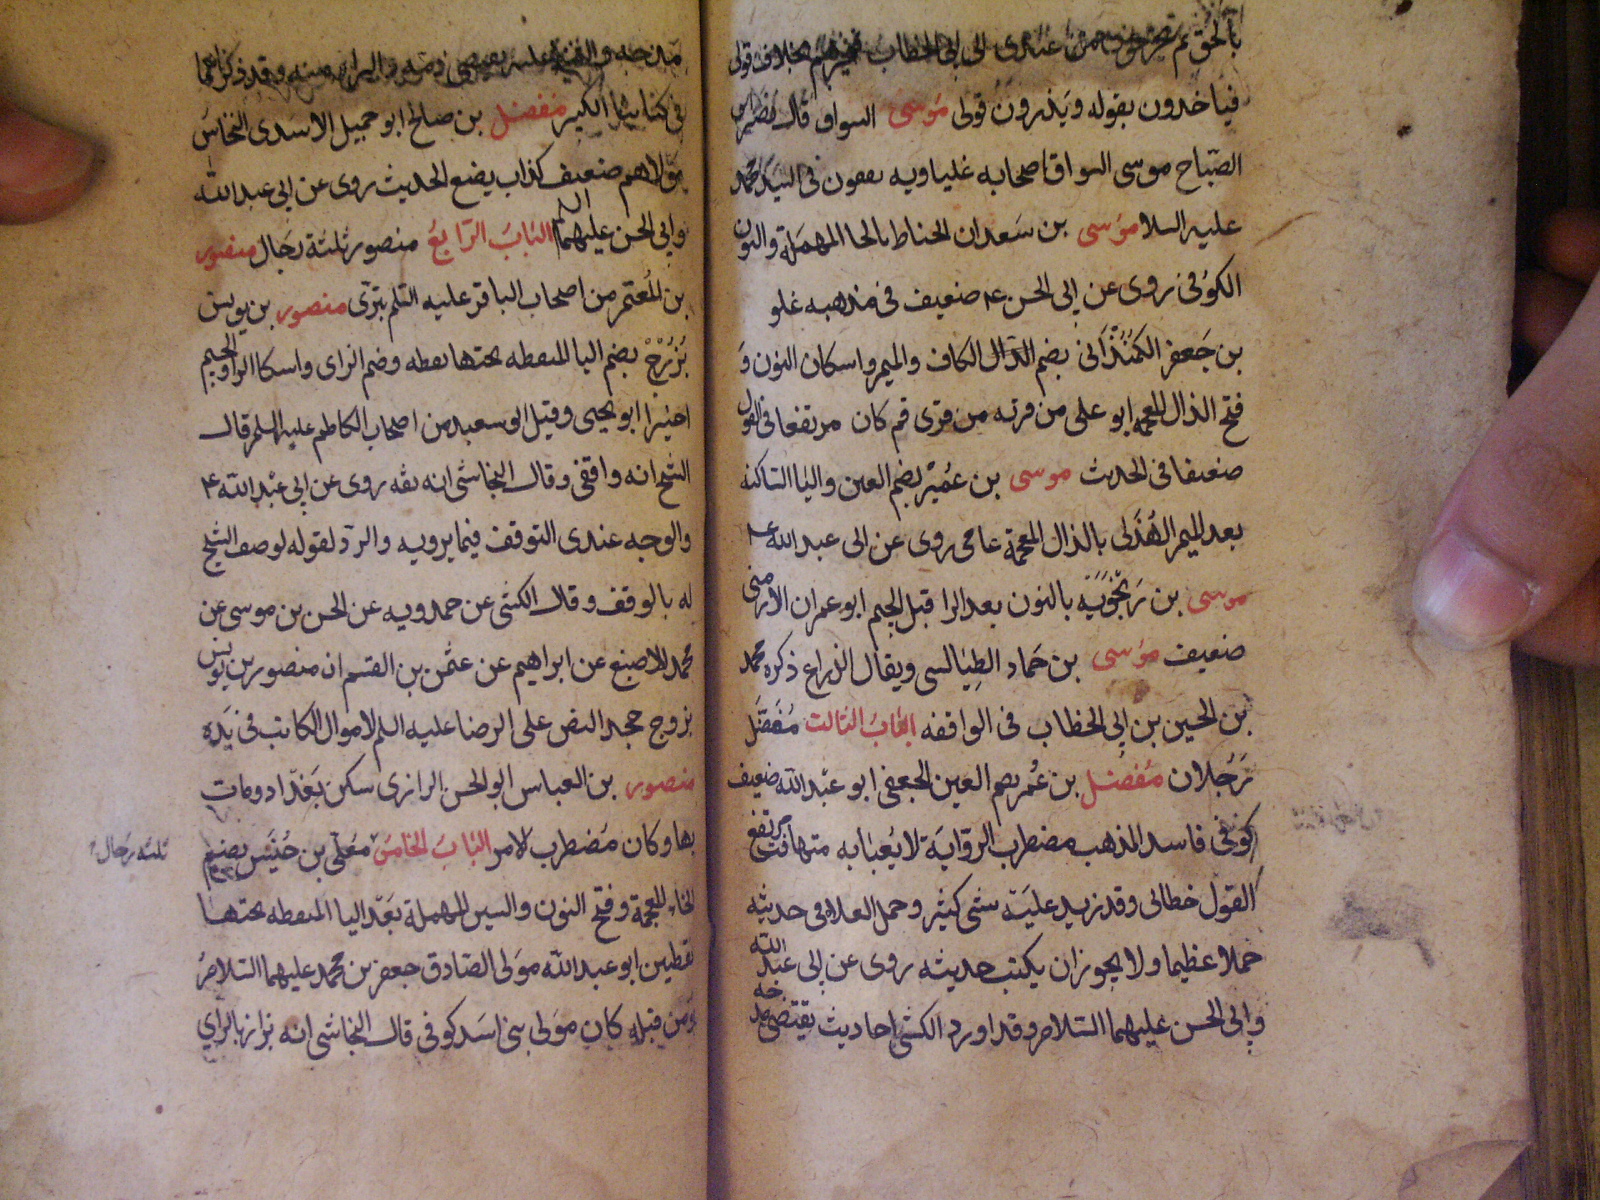 بالحق ثم عندى الى ابى الخطاب فيخبرهم بخلاف قولى
فياخذون بقوله ويذرون قولى موسى السواق قال نصر بن
الصباح موسى السواق اصحابه علياويه يقعون فى السيد محمد
عليه السلام موسى بن سعدان الحناط بالحا المهملة والنون
الكوفى روى عن ابى الحسن ع۴ ضعيف فى مذهبه غلو
بن جعفر الكمنذانى بضم الدال الكاف والميم واسكان النون و
فتح الذال المعجمه ابو على من قريه من قرى قم كان مرتفعا فى القول
ضعيفا فى الحديث موسى بن عمير بضم العين واليا الساكنه
بعد الميم الهذلى بالذال المعجمة عامى روى عن ابى عبد الله ع۴
موسى بن رنجويه بالنون بعد الرا قبل الجيم ابو عمران الارمنى
ضعيف موسى بن حماد الطيالسى ويقال الزراع ذكره محمد
بن الحسين بن ابى الخطاب فى الواقفه الباب الثالث مفضل
رجلان مفضل بن عمر بضم العين الجعفى ابو عبد الله ضعيف
كوفى فاسد المذهب مضطرب الرواية لا يعبا به متهافت مرتفع
القول خطابى وقد زيد عليه شى كثير وحمل الغلاة فى حديثه
حملا عظيما ولا يجوز ان يكتب حديثه روى عن ابى عبد الله
وابى الحسن عليهما السلام وقد اورد الكشى احاديث يقتضى مدحه
مدحه و عليه وقد ذكرناهما
فى كتابنا الكبير مفضل بن صالح ابو جميل الاسدى النخاس
مولاهم ضعيف كذاب يضع الحديث روى عن ابى عبد الله
وابى الحسن عليهما السلم الباب الرابع منصور ثلثة رجال منصور
بن المعتمر من اصحاب الباقر عليه السلم بترى منصور بن يونس
بزرج بضم البا المنقطه تحتها نقطه وضم الزاى واسكان الرا والجيم
اخيرا ابو يحيى وقيل ابو سعيد من اصحاب الكاظم عليه السلم قال
الشيخ انه واقفى وقال النجاشى انه ثقه روى عن ابى عبد الله ع۴
والوجه عندى التوقف فيما يرويه والرد لقوله لوصف الشيخ
له بالوقف وقال الكشى عن حمدويه عن الحسن بن موسى عن
محمد الاصبغ عن ابراهيم عن عثمن بن القسم ان منصور بن يونس
بزرج جحد النص على الرضا عليه السلم لاموال كانت فى يده
منصور بن العباس ابو الحسن الرازى سكن بغداد ومات
بها وكان مضطرب الامر الباب الخامس معلى بن خنيس بضم
ثلثه رجال
الخاء المعجمة وفتح النون والسين المهملة بعد اليا المنقطه تحتها
نقطتين ابو عبد الله مولى الصادق جعفر بن محمد عليهما السلام
ومن قبله كان مولى بنى اسد كوفى قال النجاشى انه بزاز بالزاي